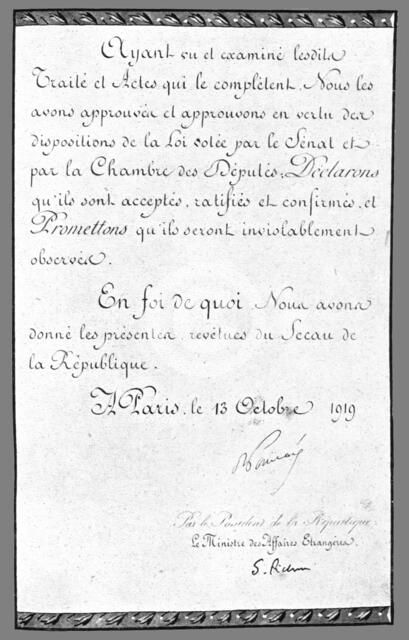 Ayant vu et examiné lesdits
Traité et Actes qui le complètent, Nous les
avons approuvés et approuvons en vertu des
dispositions de la Loi votée par le Sénat et
par la Chambre des Députés, Déclarons
qu'ils sont acceptés, ratifiés et confirmés, et
Promettons qu'ils seront inviolablement
observés.
En foi de quoi Nous avons
donné les présentes, revêtues du Sceau de
la République.
A Paris, le 13 Octobre 1919
R Poincaré
Par le Président de la République
Le Ministre des Affaires Etrangères
S. Pichon